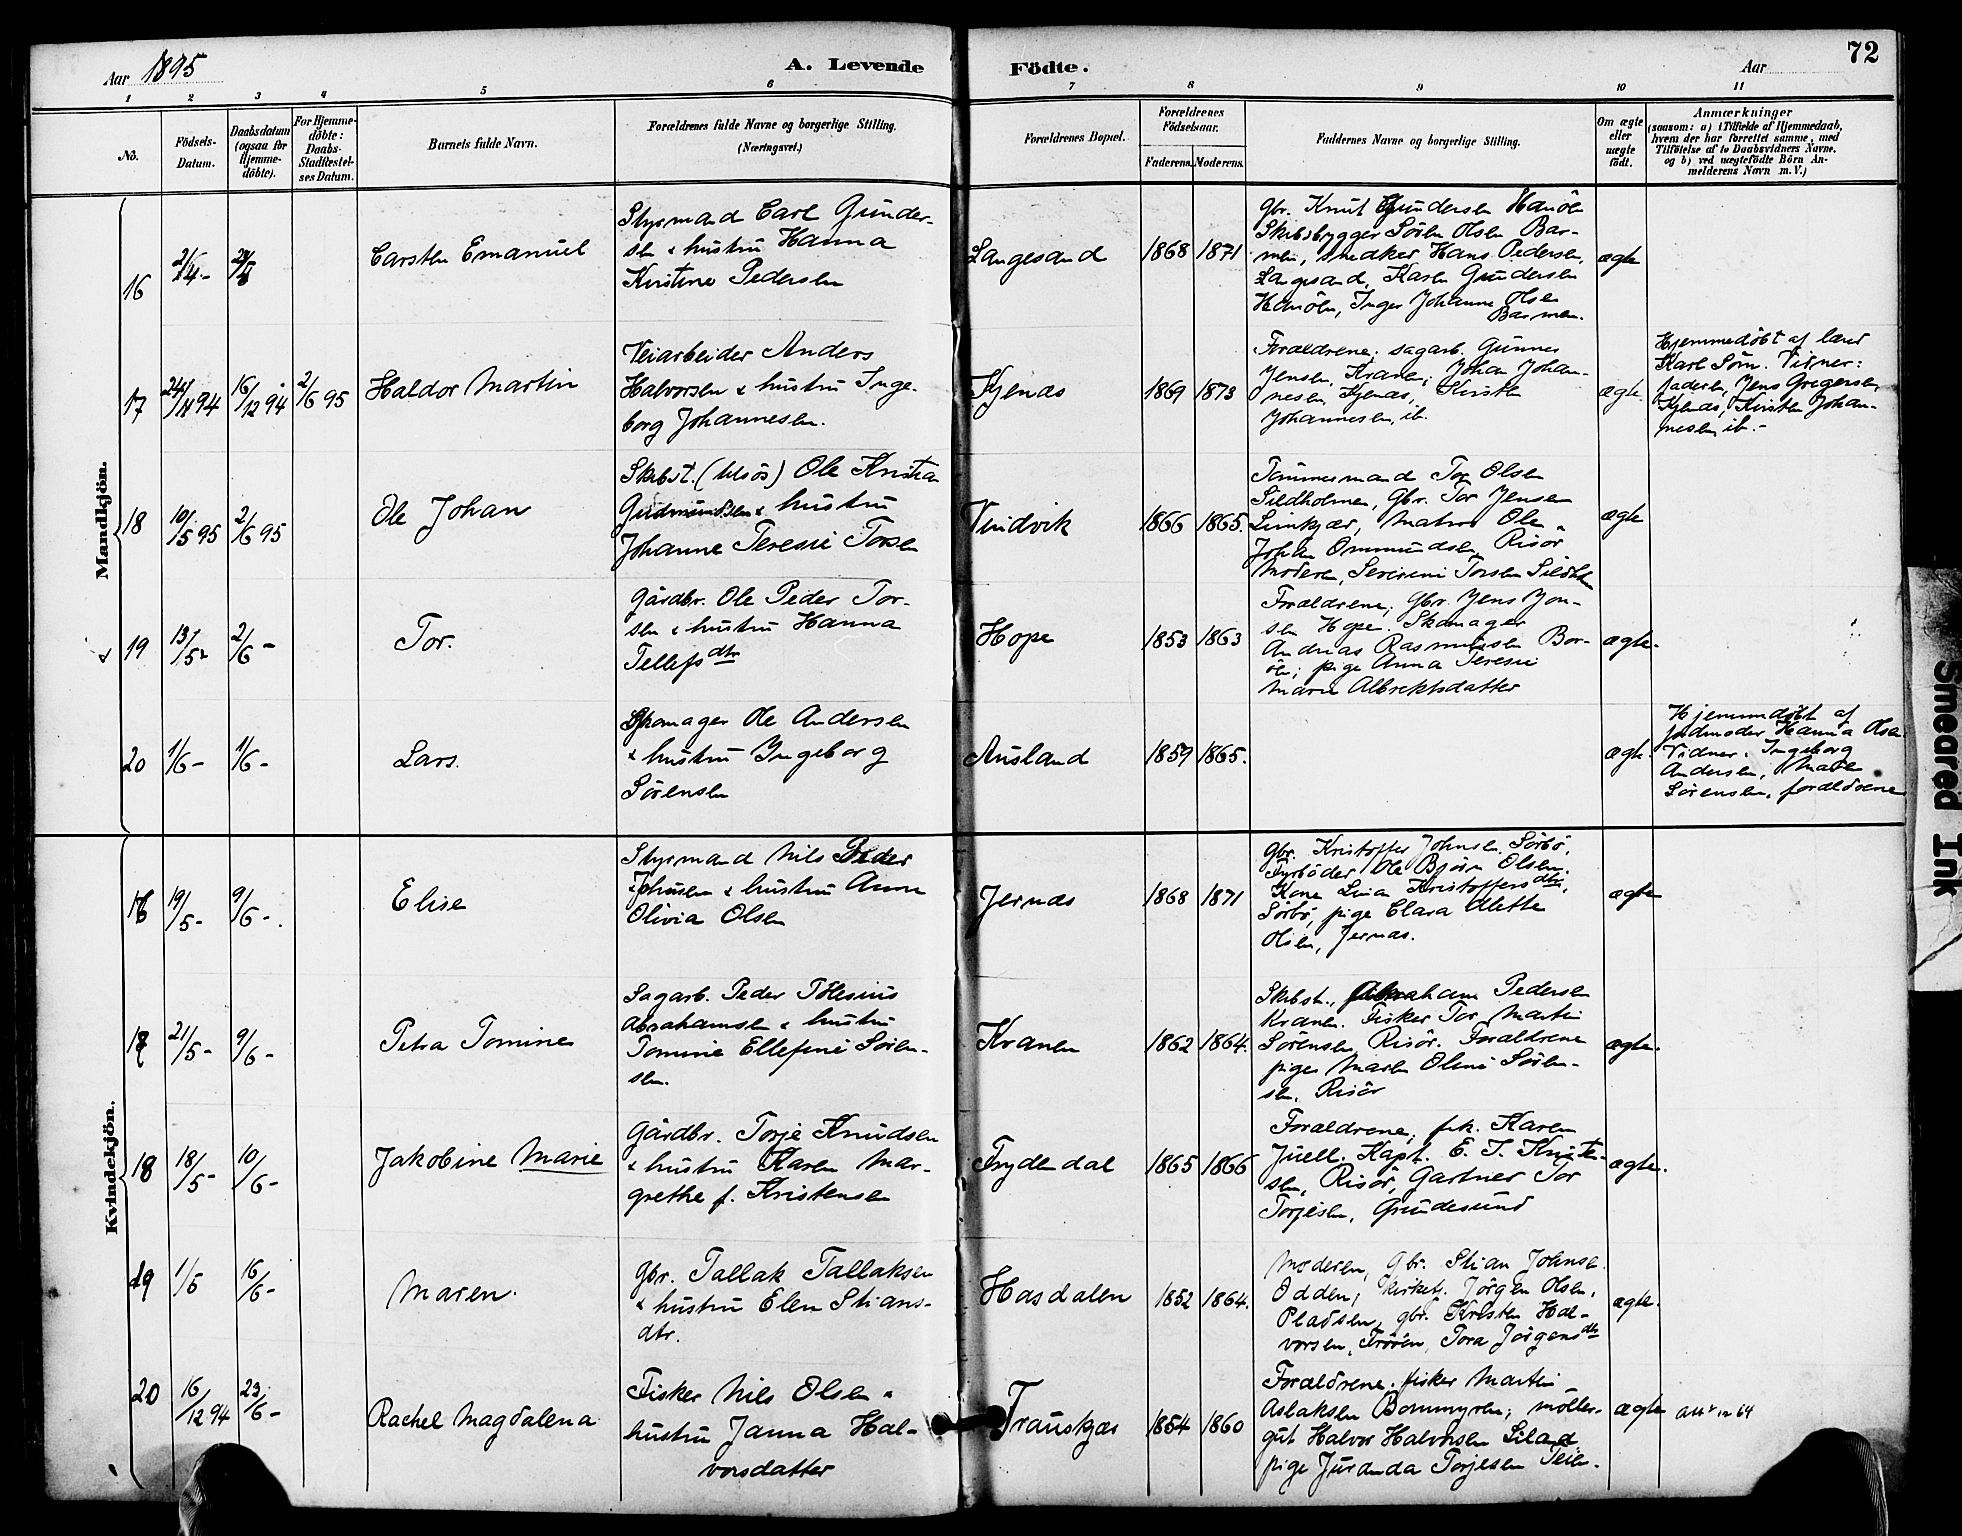 Aar 1895
A. Levende
Födte.
Aar
72
1 2 3 4 5 6 7 8 9 10 11
No.
Födsels-
Datum.
Daabsdatum
(ogsaa for
Hjemme-
döbte).
For Hjemme-
döbte:
Daabs-
Stadfæstel-
ses Datum.
Barnets fulde Navn.
Forældrenes fulde Navne og borgerlige Stilling.
(Næringsvei.)
Forældrenes Bopæl.
Forældrenes
Födselsaar.
Faderens. Moderens.
Faddernes Navne og borgerlige Stilling.
Om ægte
eller
uægte
födt.
Anmærkninger
(saasom: a) i Tilfælde af Hjemmedaab,
hvem der har forrettet samme, med
Tilföielse af to Daabsvidners Navne,
og b) ved uægtefödte Börn An-
melderens Navn m. V.)
Mandkjön.
16
2/4 -
Carsten Emanuel
Styrmand Carl Gunder-
sen & hustru Hanna
Kirstine Pedersen
Langesand
1868 1871
Gbr. Knut Gundersen Havöen
Skibsbygger Sören Olsen Bar-
men, snedker Hans Pedersen,
Langesand, Karen Gundersen
Havöen, Inger Johanne Olsen
Barmen.
ægte
17
24/11 94
16/12 94
2/6 95
Haldor Martin
Veiarbeider Anders
Halvorsen & hustru Inge-
borg Johannesen.
Kjenås
1869 1873
Forældrene; sagarb. Gunnes
Jensen, Kranen; Johan Johan-
nesen, Kjenås, Kirsten
Johannesen, ib.
ægte.
Hjemmedöbt af lærer
Karl Sörn. Vidner:
faderen, Jens Gregersen,
Kjenås, Kirsten Johan-
nesen, ib. -
18
10/5 95
2/6 95
Ole Johan
Skibst. (tilsös) Ole Kristian
Gudmundsen & hustru
Johanne Teresie Torsen
Vindvik
1866 1865.
Tömmermand Tor Olsen
Sildholmen, Gbr. Tor Jensen
Limkjær, Matros Ole
Johan Ommundsen, Risör
Moderen, Severine Torsen Sildh
ægte
19
13/5 -
2/6 -
Tor.
Gårdbr. Ole Peder Tor-
sen & hustru Hanna
Tellefsdtr
Hope
1853 1863
Forældrene; Gbr. Jens Jon-
sen Hope. Skomager
Andreas Rasmussen Bor-
öen; pige Anna Teresie
Marie Albrektsdatter
ægte.
20
1/6 -
1/6 -
Lars.
Skomager Ole Andersen
& hustru Ingeborg
Sörensen
Ausland
1859 1865.
ægte.
Hjemmedöbt af
jordmoder Hanna Olsen
Vidner: Ingeborg
Andersen, Maren
Sörensen, forældrene
Kvindekjön.
16
19/5 -
9/6 -.
Elise
Styrmand Nils Peder
Johnsen & hustru Anne
Olivia Olsen
Jernæs
1868 1871
Gbr. Kristoffer Johnsen, Sörbö,
Fyrböder Ole Björn Olsen.
Kone Lina Kristoffersdtr,
Sörbö, pige Clara Alette
Olsen, Jernæs.
ægte
17
21/5 -
9/6 -
Petra Tomine
Sagarb. Peder Tölesius
Abrahamsen & hustru
Tomine Ellefine Sören-
sen.
Kranen
1862 1864.
Skibst. Abraham Pedersen
Kranen. Fisker Tor Martin
Sörensen, Risör. Forældrene
pige Maren Oline Sören-
sen, Risör
ægte.
18
18/5 -
10/6 -
Jakobine Marie
Gårdbr. Torje Knudsen
& hustru Karen Mar-
grethe f. Kristensen
Frydendal
1865 1866
Forældrene; frk. Karen
Juell. Kapt. E. T. Kristen-
sen, Risör, Gartner Tor
Torjesen, Grundesund
ægte.
19
1/5
16/6 -
Maren.
Gbr. Tallak Tallaksen
& hustru Elen Stians-
dtr.
Hasdalen
1852 1864.
Moderen, Gbr. Stian Johnsen
Odden; kirket. Jörgen Olsen,
Pladsen, gbr. Kristen Hal-
vorsen, Frööen, Tora Jörgensdtr
ægte.
20
16/12 94
23/6 -
Rachel Magdalena
Fisker Nils Olsen &
hustru Janna Hal-
vorsdatter
Trauskjær
1854 1860
Forældrene. fisker Martin
Aslaksen Bommyren; möller-
gut Halvor Halvorsen Lilad
pige Juranda Torjesen Teien.
ægte
Smeared Ink